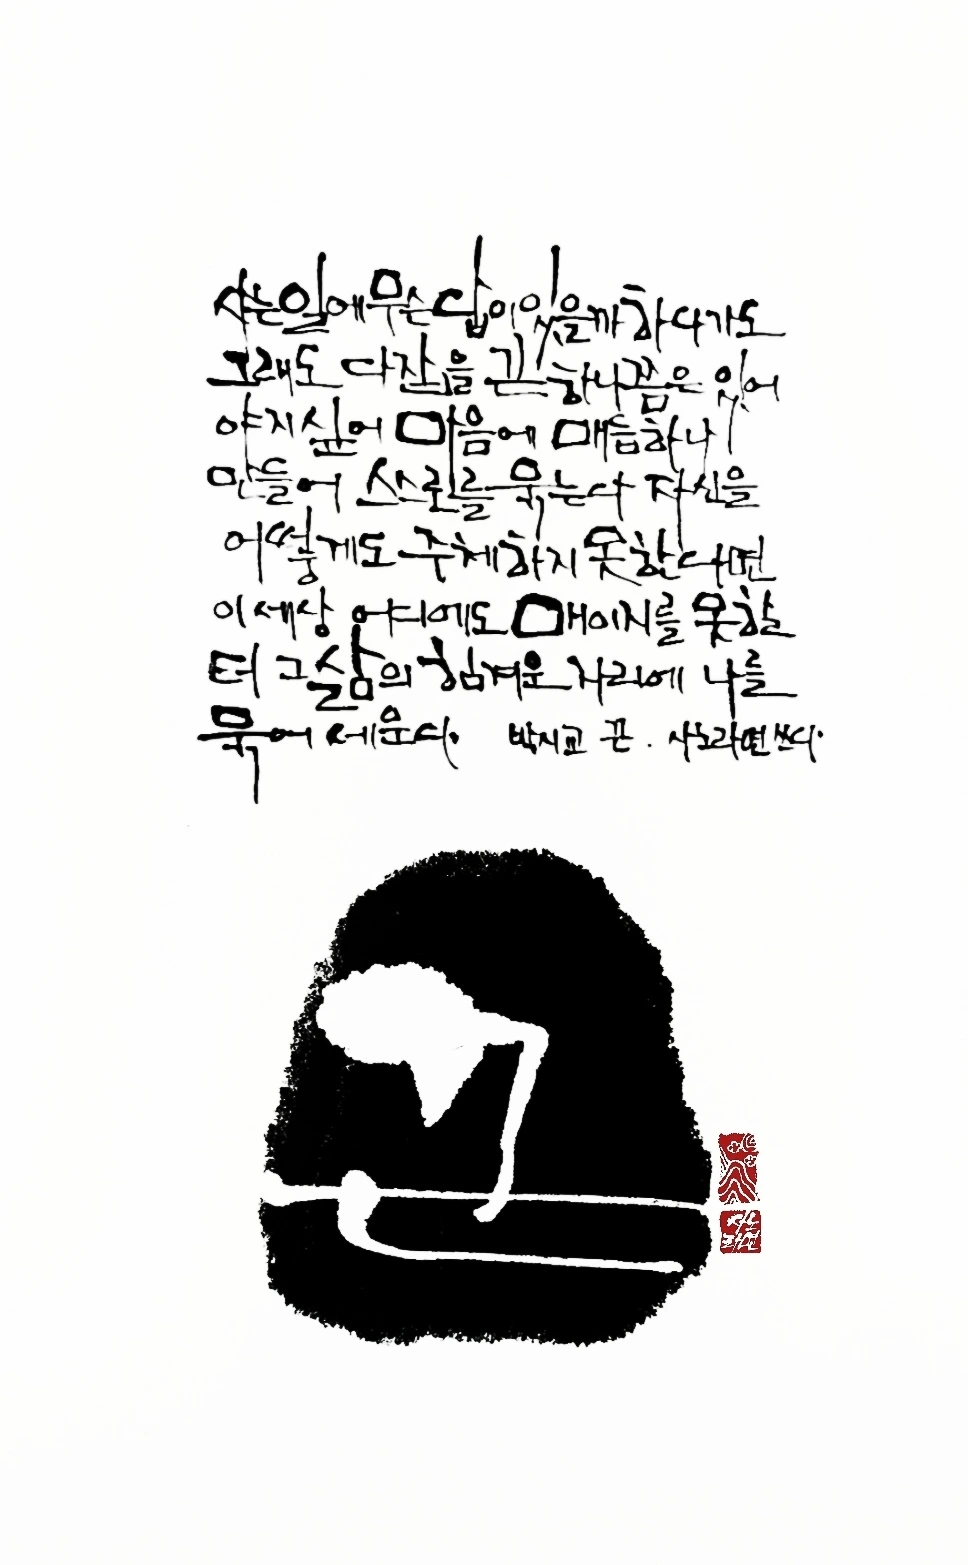 사는 일에 무슨 답이 있을까 하다가도
그래도 다잡을 끈 하나쯤은 있어
야지 싶어 마음에 매듭 하나
만들어 스스로를 묶는다 자신을
어떻게도 주체하지 못한다면
이 세상 어디에도 매이지를 못할
터 그 삶의 힘겨운 자리에 나를
묶어 세운다. 박시교 끈. 사노라면 쓰다.